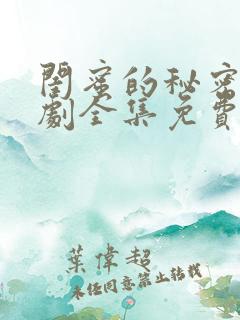 闺蜜的秘密
劇全集免費
葉偉超
未经同意禁止转载